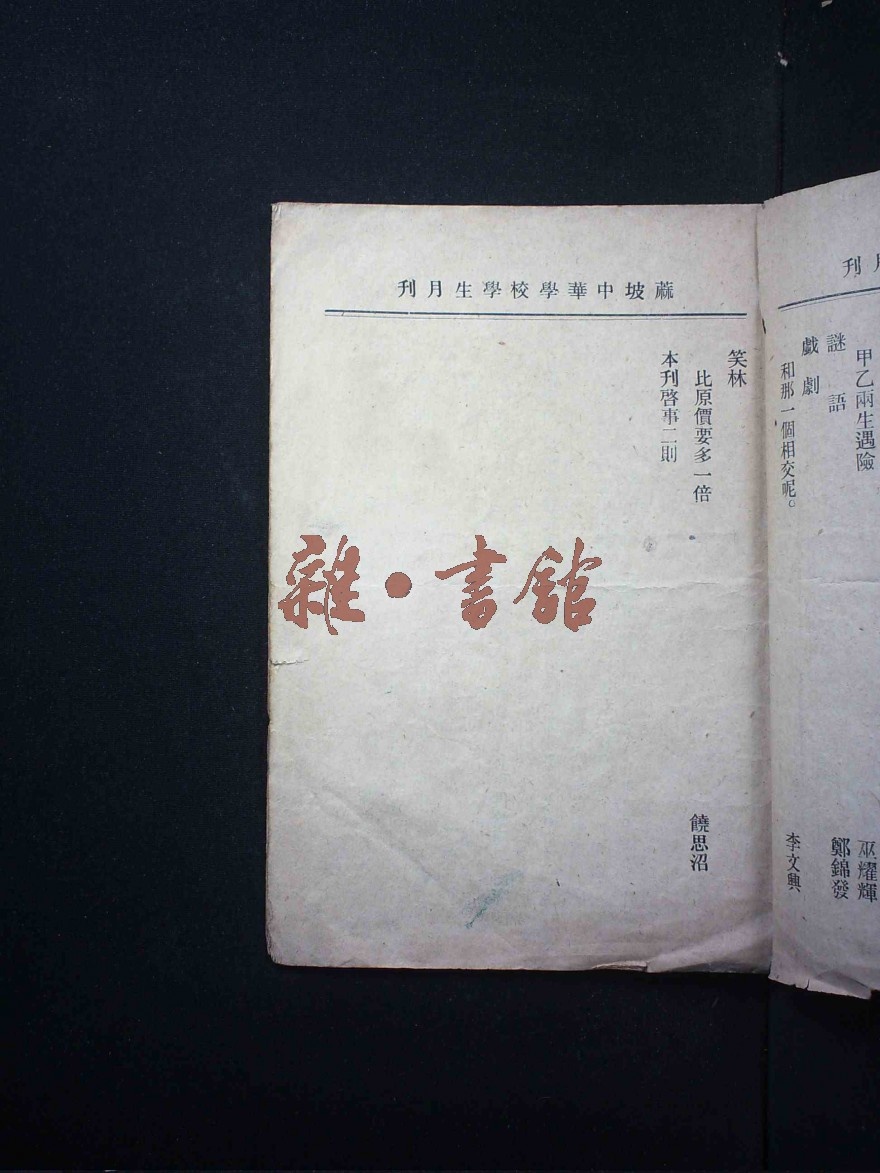 刊月
甲乙兩生遇險
巫耀輝
謎語
鄭錦發
戲劇
和那一個相交呢。
李文興
刊月生學校學華中坡蔴
笑林
比原價要多一倍
饒思沼
本刊啓事二則
雜·書館